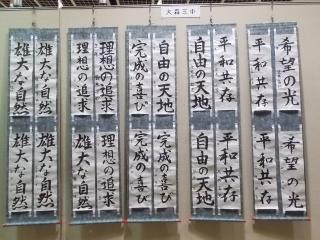 大森三中
希望の光
平和共存
希望の光
平和共存
平和共存
自由の天地
平和共存
自由の天地
自由の天地
完成の喜び
完成の喜び
完成の喜び
理想の追求
理想の追求
理想の追求
雄大な自然
雄大な自然
雄大な自然
雄大な自然
雄大な自然